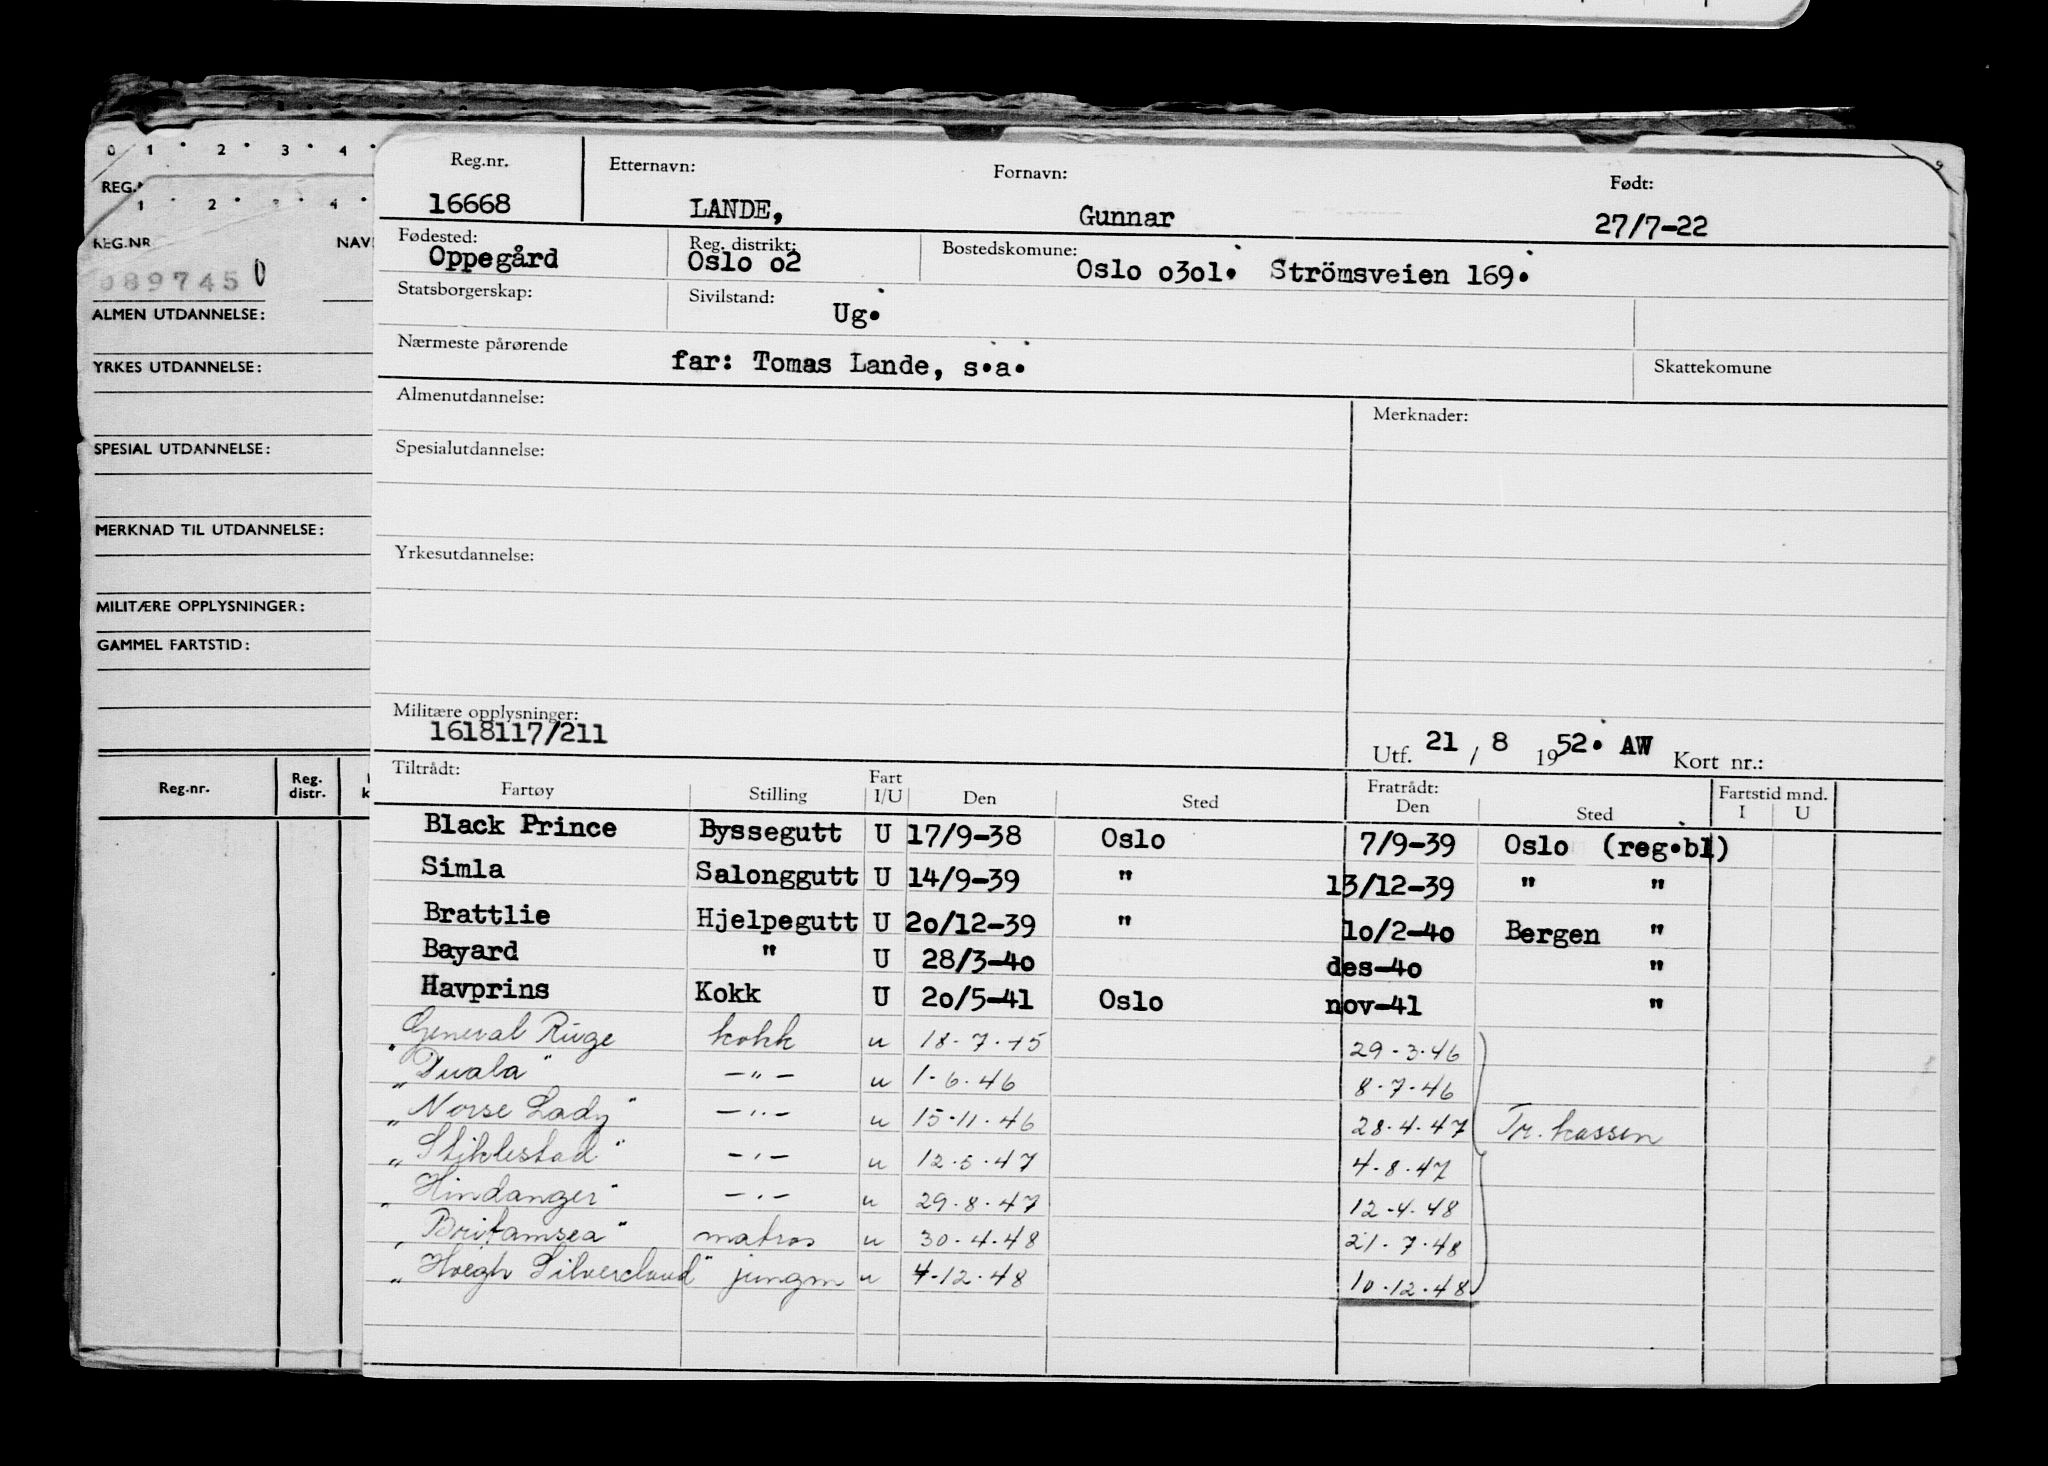 0 1 • 2 • 3 • 4 •
REG.
1 • 2 • 3 • 4 •
REG.NR NAV
089745 0
ALMEN UTDANNELSE:
YRKES UTDANNELSE:
SPESIAL UTDANNELSE:
MERKNAD TIL UTDANNELSE:
MILITÆRE OPPLYSNINGER:
GAMMEL FARTSTID:
Reg.nr. Reg. distr.
Reg.nr. Etternavn: Fornavn: Født:
16668 LANDE, Gunnar 27/7-22
Fødested: Reg. distrikt: Bostedskomune:
Oppegård Oslo o2 Oslo o3o1. Strömsveien 169.
Statsborgerskap: Sivilstand:
Ug.
Nærmeste pårørende Skattekomune
far: Tomas Lande, s.a.
Almenutdannelse: Merknader:
Spesialutdannelse:
Yrkesutdannelse:
Militære opplysninger:
1618117/211
Utf. 21 / 8 1952. AW Kort nr.:
Tiltrådt: Fratrådt: Fartstid mnd.
Fartøy Stilling Fart I/U Den Sted Den Sted I U
Black Prince Byssegutt U 17/9-38 Oslo 7/9-39 Oslo (reg.bl)
Simla Salonggutt U 14/9-39 " 13/12-39 " "
Brattlie Hjelpegutt U 2o/12-39 " 1o/2-4o Bergen "
Bayard " U 28/3-4o des-4o "
Havprins Kokk U 2o/5-41 Oslo nov-41 "
General Ruge kokk u 18-7-45 29-3-46
"Duala" -"- u 1-6-46 8-7-46
"Norse Lady" -"- u 15-11-46 28-4-47 Tr. kassen
"Stiklestad" -"- u 12-5-47 4-8-47
"Hindanger" -"- u 29-8-47 12-4-48
"Britamsea" matros u 30-4-48 21-7-48
"Høegh Silvercloud" jungm u 4-12-48 10-12-48